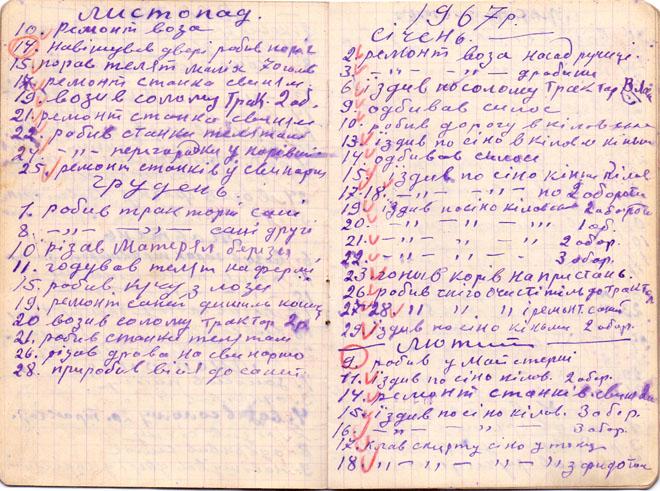 Листопад.
10. Ремонт воза
14. Навішував двері робив поріг
15. порав телят малих 7 голів
17. ремонт станка свиням
19. возив солому Трак. 2 об.
21. ремонт станка свиням
22. робив станки телятам
24. -"- перегородки у корівни
25. ремонт станків у свинарни
Грудень
7. робив тракторні сані
8. -"- -"- сані другі
10 різав Матерял березу
11. годував телят на фермі
15. робив кучу з лози
19. ремонт саней дишиль
20 возив солому Трактор. 2р.
21. робив станки телятам
26. різав дрова на свинарню
28. приробив війя до саней
1967 р.
січень.
2. ремонт воза насад ручиці
3. -"- -"- дробини
6 їздив по солому Трактор В.
9 одбивав силос
10. робив дорогу
13. їздив по сіно
14. одбивав силос
15. їздив по сіно кіньми
17. 18. -"- -"- по 2 обороти
19. їздив по сіно 2 обороти
20. -"- -"- 1 об.
21. -"- -"- 2 обор.
22 -"- -"- 3 обор.
23 гонив корів на пристань.
26. робив до трактор.
27-28. " " і ремонт. саней
29. їздив по сіно кіньми 2 обор.
Лютий
9. робив у майстерні
11. їздив по сіно 2 обор.
14. ремонт станків
15. їздив по сіно 3 обор.
16. -"- -"- 3 обор.
17. клав скирту сіно у току
18. -"- -"- -"-